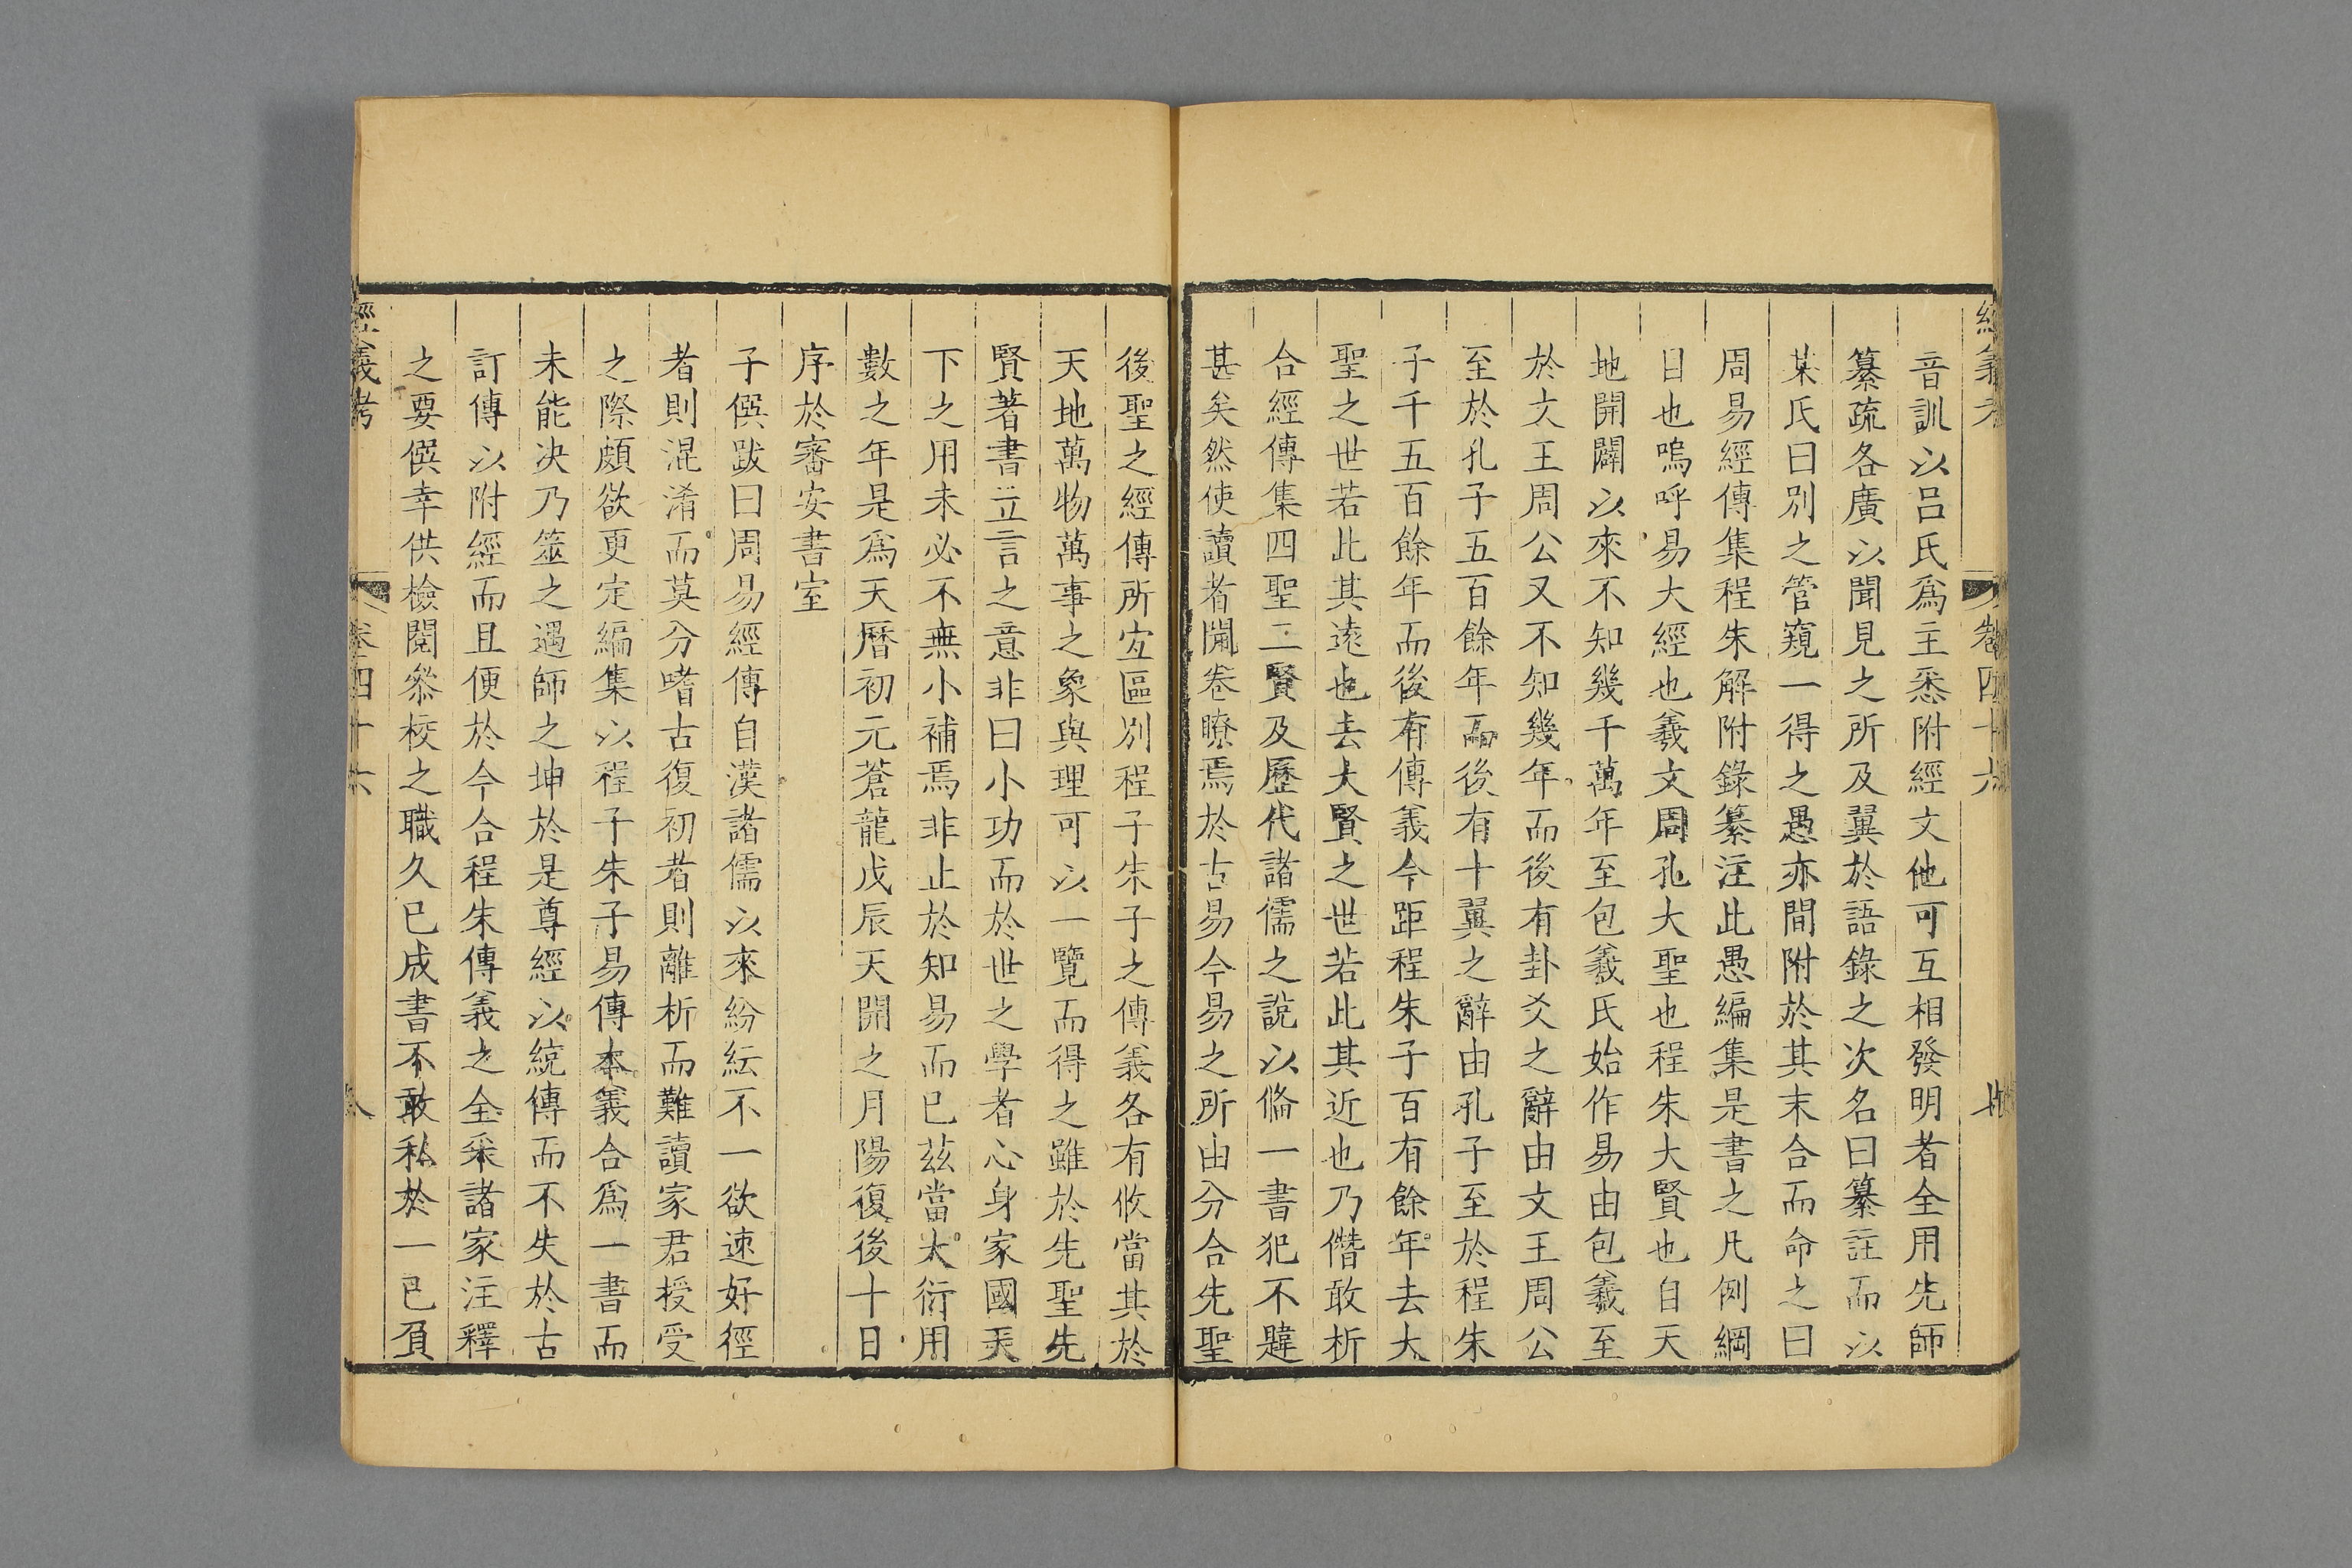 音訓以吕氏爲主悉附經文他可互相發明者全用先師
纂疏各廣以聞見之所及翼於語錄之次名曰纂註而以
某氏曰别之管窺一得之愚亦間附於其末合而命之曰
周易經傳集程朱解附錄纂注此愚編集是書之凡例綱
目也嗚呼易大經也羲文周孔大聖也程朱大賢也自天
地開闢以來不知幾千萬年至包羲氏始作易由包羲至
於文王周公又不知幾年而後有卦爻之辭由文王周公
至於孔子五百餘年而後有十翼之辭由孔子至於程朱
子千五百餘年而後有傳義今距程朱子百有餘年去大
聖之世若此其遠也去大賢之世若此其近也乃僭敢析
合經傳集四聖二賢及歷代諸儒之說以偹一書犯不韙
甚矣然使讀者開卷瞭焉於古易今易之所由分合先聖
後聖之經傳所㝎區别程子朱子之傳義各有攸當其於
天地萬物萬事之象與理可以一覽而得之雖於先聖先
賢著書立言之意非曰小功而於世之學者心身家國天
下之用未必不無小補焉非止於知易而已茲當大衍用
數之年是爲天曆初元蒼龍戊辰天開之月陽復後十日
序於審安書室
子僎跋曰周易經傳自漢諸儒以來紛紜不一欲速好徑
者則混淆而莫分嗜古復初者則離析而難讀家君授受
之際頗欲更定編集以程子朱子易傳本義合爲一書而
未能決乃筮之遇師之坤於是尊經以統傳而不失於古
訂傳以附經而且便於今合程朱傳義之全采諸家注釋
之要僎幸供檢閱叅校之職久已成書不敢私於一已頁
經義考
卷四十六
八